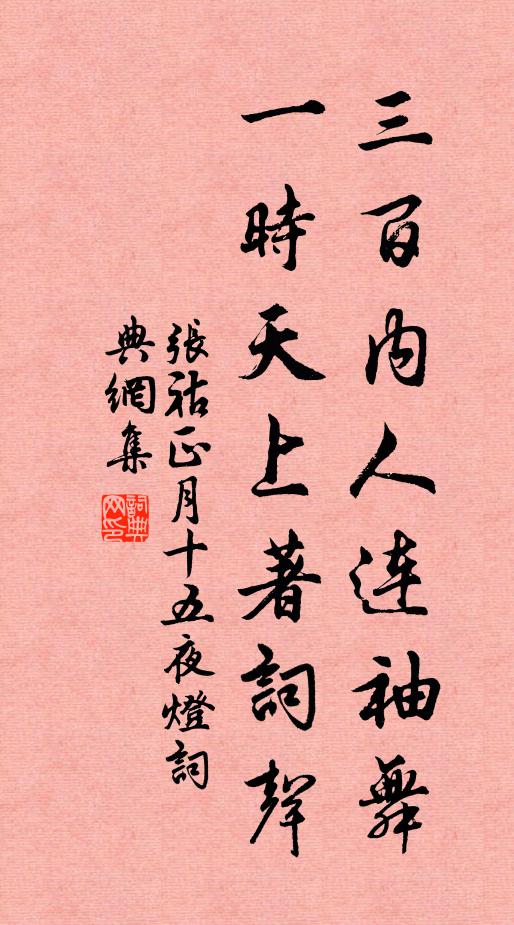 三百内人連袖舞
一時天上著詞聲
張祜正月十五夜燈詞
典網集
詞典
网印